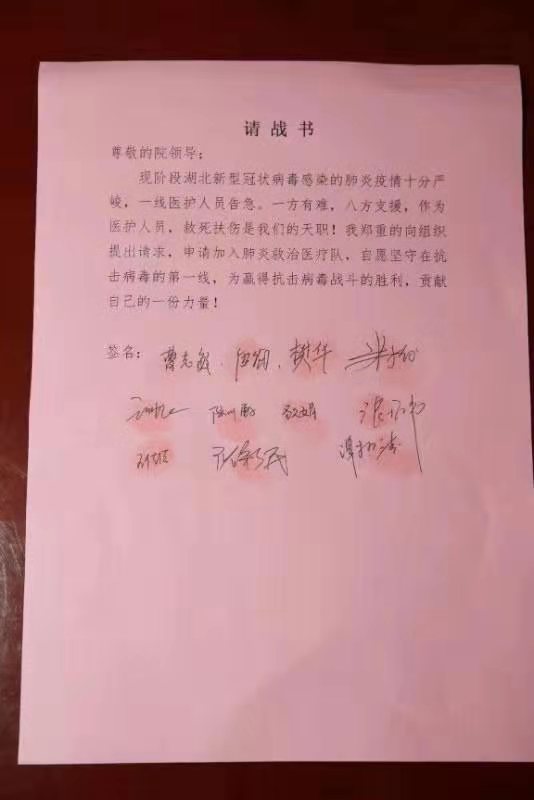 请战书
尊敬的院领导：
现阶段湖北新型冠状病毒感染的肺炎疫情十分严
峻，一线医护人员告急。一方有难，八方支援，作为
医护人员，救死扶伤是我们的天职！我郑重的向组织
提出请求，申请加入肺炎救治医疗队，自愿坚守在抗
击病毒的第一线，为赢得抗击病毒战斗的胜利，贡献
自己的一份力量！
签名：曹志敏、樊华